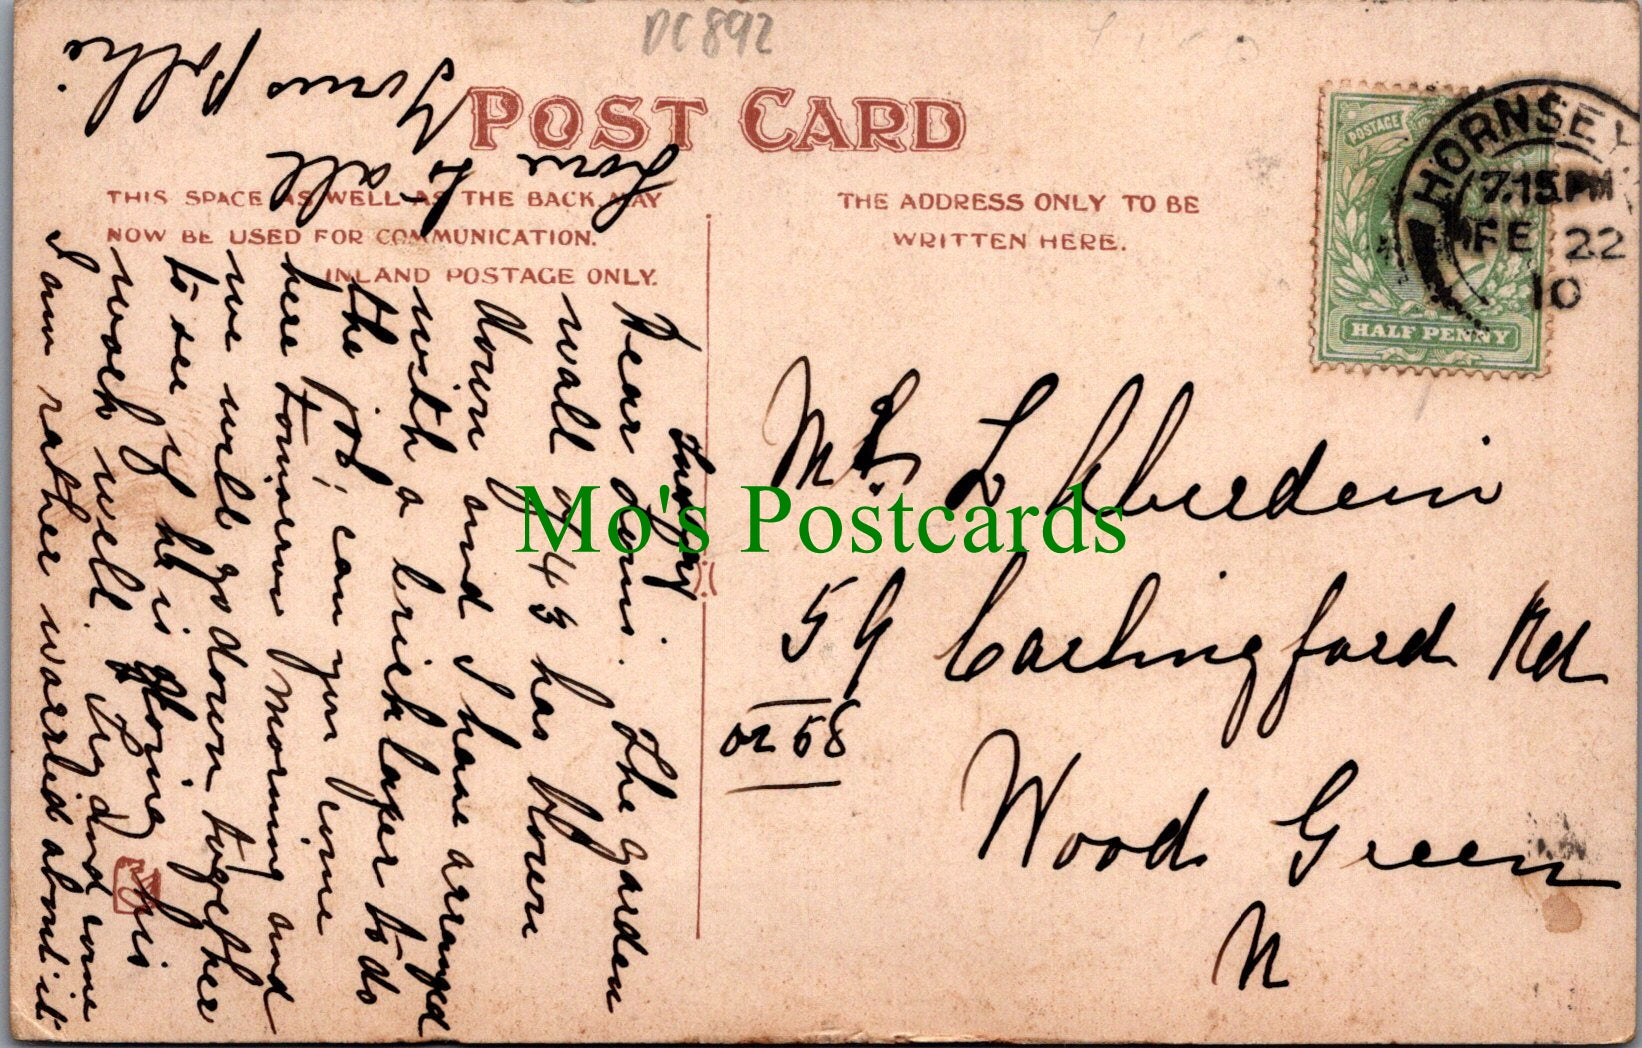 DC892
POST CARD
THIS SPACE AS WELL AS THE BACK MAY
NOW BE USED FOR COMMUNICATION.
INLAND POSTAGE ONLY.
THE ADDRESS ONLY TO BE
WRITTEN HERE.
POSTAGE
HALF PENNY
HORNSEY
7.15 PM
FE 22
10
Tuesday
Dear The garden
wall of 43 has blown
down and I have arranged
with a bricklayer to do
the job; can you come
here tomorrow morning and
we will go down together
to see if he is doing his
work well. Try and come
I am rather worried about it
Love to all
Yours Pollie
L Aberdein
59 Carlingford Rd
or 58
Wood Green
N
Mo's Postcards